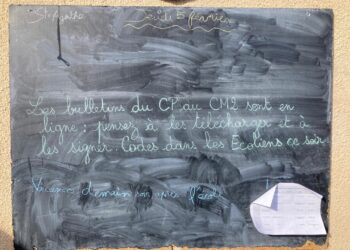 Ste Agathe
Jeudi 5 février
Les bulletins du CP au CM2 sont en
ligne ; pensez à les télécharger et à
les signer. Codes dans les Écoliens ce soir.
Vacances demain soir après l'école